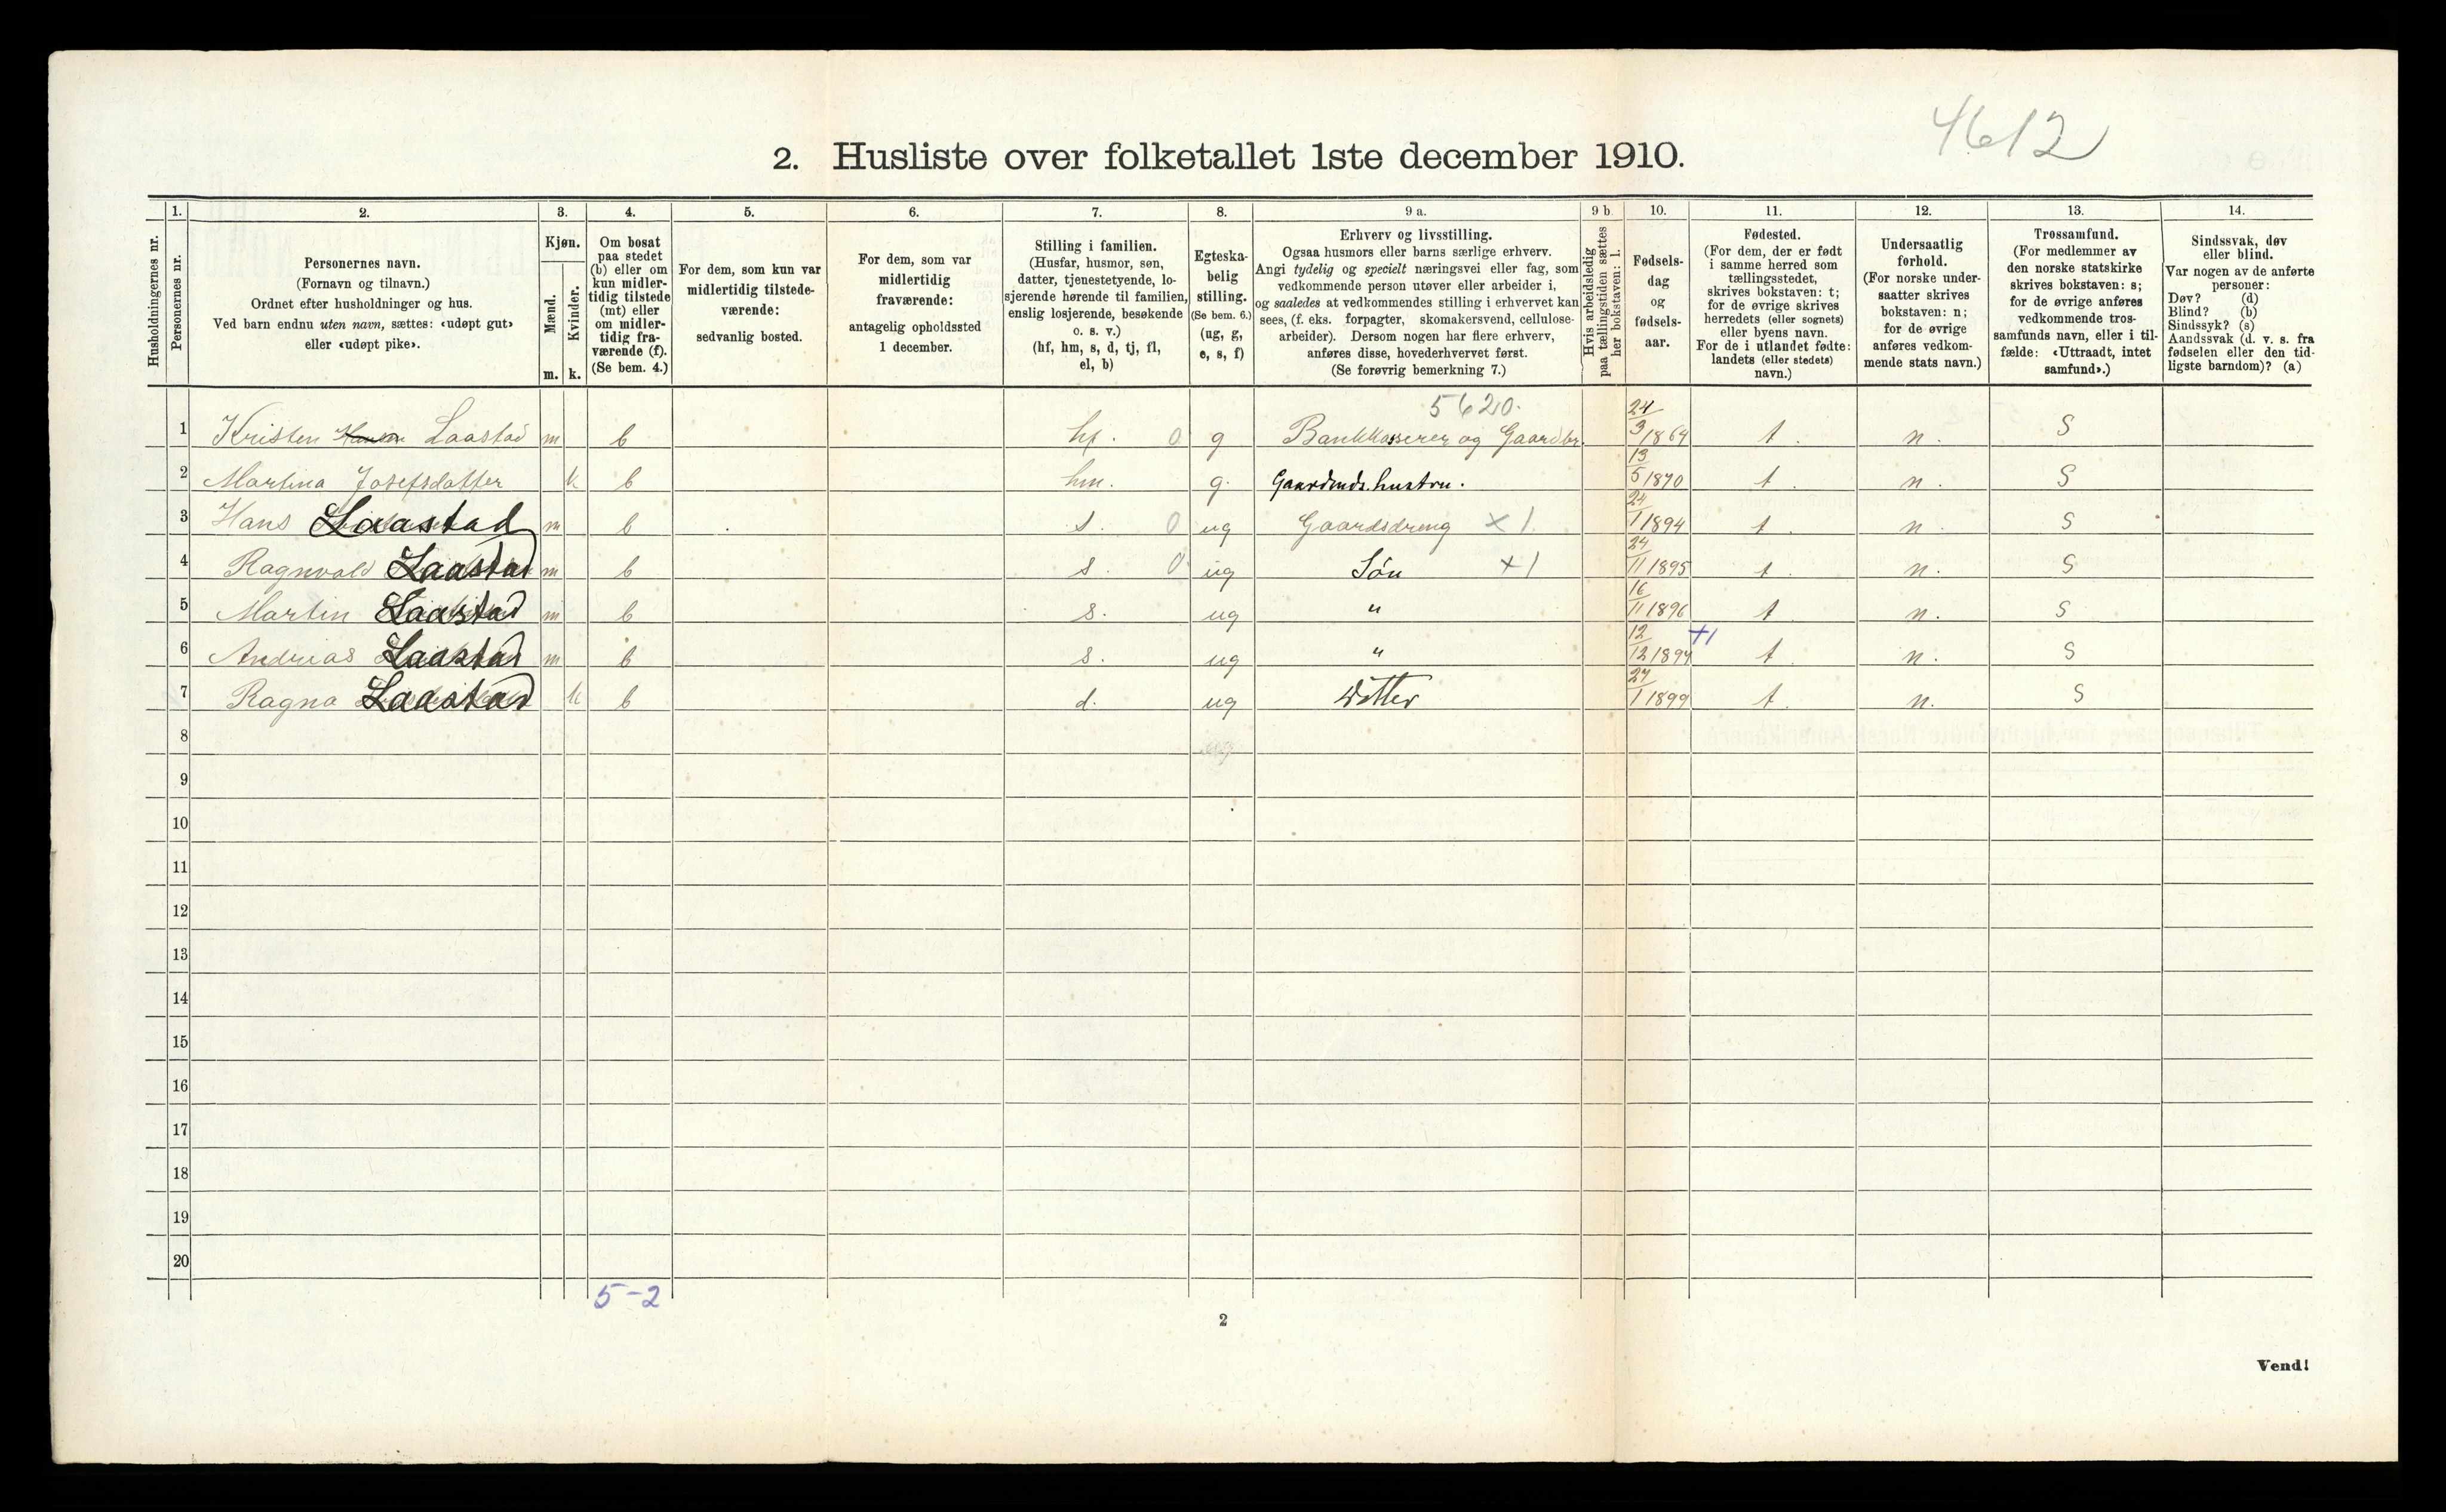 4612
2. Husliste over folketallet 1ste december 1910.
Husholdningernes nr.
1. Personernes nr.
2. Personernes navn.
(Fornavn og tilnavn.)
Ordnet efter husholdninger og hus.
Ved barn endnu uten navn, sættes: «udøpt gut»
eller «udøpt pike».
3. Kjøn.
Mænd. Kvinder.
m. k.
4. Om bosat
paa stedet
(b) eller om
kun midler-
tidig tilstede
(mt) eller
om midler-
tidig fra-
værende (f).
(Se bem. 4.)
5. For dem, som kun var
midlertidig tilstede-
værende:
sedvanlig bosted.
6. For dem, som var
midlertidig
fraværende:
antagelig opholdssted
1 december.
7. Stilling i familien.
(Husfar, husmor, søn,
datter, tjenestetyende, lo-
sjerende hørende til familien,
enslig losjerende, besøkende
o. s. v.)
(hf, hm, s, d, tj, fl,
el, b)
8. Egteska-
belig
stilling.
(Se bem. 6.)
(ug, g,
e, s, f)
9 a. Erhverv og livsstilling.
Ogsaa husmors eller barns særlige erhverv.
Angi tydelig og specielt næringsvei eller fag, som
vedkommende person utøver eller arbeider i,
og saaledes at vedkommendes stilling i erhvervet kan
sees, (f. eks. forpagter, skomakersvend, cellulose-
arbeider). Dersom nogen har flere erhverv,
anføres disse, hovederhvervet først.
(Se forøvrig bemerkning 7.)
9 b. Hvis arbeidsledig
paa tællingstiden sættes
her bokstaven: l.
10. Fødsels-
dag
og
fødsels-
aar.
11. Fødested.
(For dem, der er født
i samme herred som
tællingsstedet,
skrives bokstaven: t;
for de øvrige skrives
herredets (eller sognets)
eller byens navn.
For de i utlandet fødte:
landets (eller stedets)
navn.)
12. Undersaatlig
forhold.
(For norske under-
saatter skrives
bokstaven: n;
for de øvrige
anføres vedkom-
mende stats navn.)
13. Trossamfund.
(For medlemmer av
den norske statskirke
skrives bokstaven: s;
for de øvrige anføres
vedkommende tros-
samfunds navn, eller i til-
fælde: «Uttraadt, intet
samfund».)
14. Sindssvak, døv
eller blind.
Var nogen av de anførte
personer:
Døv? (d)
Blind? (b)
Sindssyk? (s)
Aandssvak (d. v. s. fra
fødselen eller den tid-
ligste barndom)? (a)
5620.
1 Kristen Hansen Laastad m b hf. 0 g Bankkasserer og Gaardbr. 24/3 1864 t. n. S
2 Martina Josefsdatter k b hm. g. Gaardmds. hustru. 13/5 1870 t. n. S
3 Hans Laastad m b s. 0 ug Gaardsdreng x 1 24/1 1894 t. n. S
4 Ragnvald Laastad m b s. 0 ug Søn x 1 24/11 1895 t. n. S
5 Martin Laastad m b s. ug " 16/11 1896 t n. S
6 Andreas Laastad m b s. ug " 12/12 1897 +1 t. n. S
7 Ragna Laastad k b d. ug Datter 27/1 1899 t. n. S
8
9
10
11
12
13
14
15
16
17
18
19
20
5-2
2
Vend!